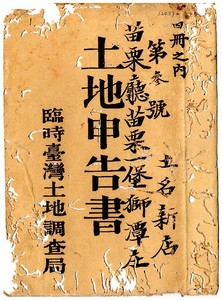 四冊之内
第參號
土名新店
苗栗廳苗栗一堡獅潭庄
土地申告書
臨時臺灣土地調查局